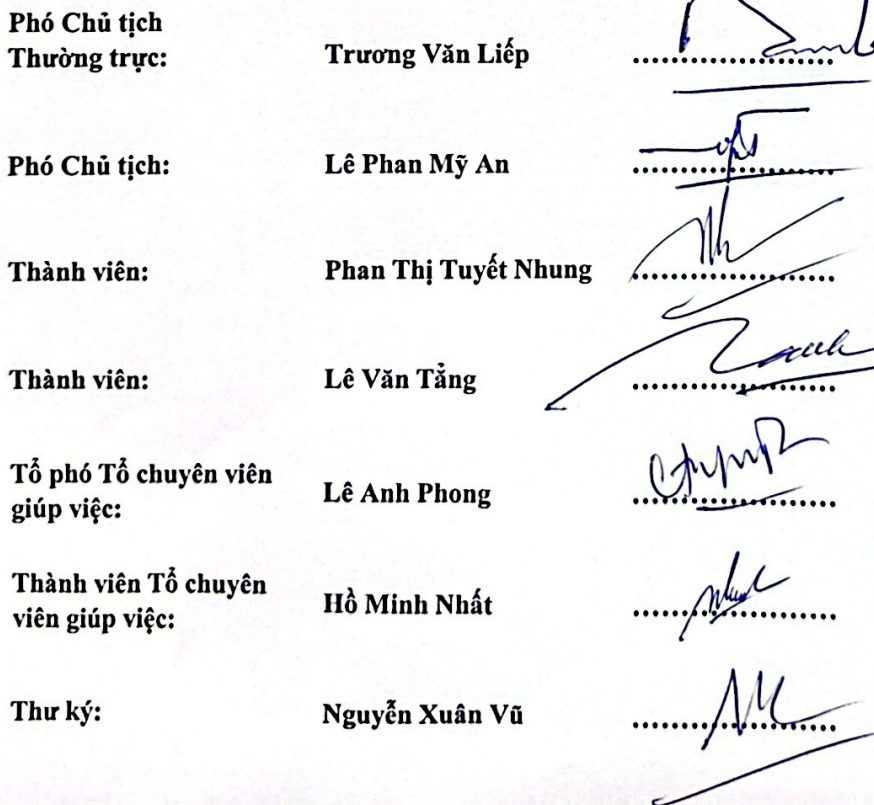 Phó Chủ tịch
Thường trực: Trương Văn Liếp ....................
Phó Chủ tịch: Lê Phan Mỹ An ....................
Thành viên: Phan Thị Tuyết Nhung ....................
Thành viên: Lê Văn Tẳng ....................
Tổ phó Tổ chuyên viên
giúp việc: Lê Anh Phong ....................
Thành viên Tổ chuyên
viên giúp việc: Hồ Minh Nhất ....................
Thư ký: Nguyễn Xuân Vũ ....................